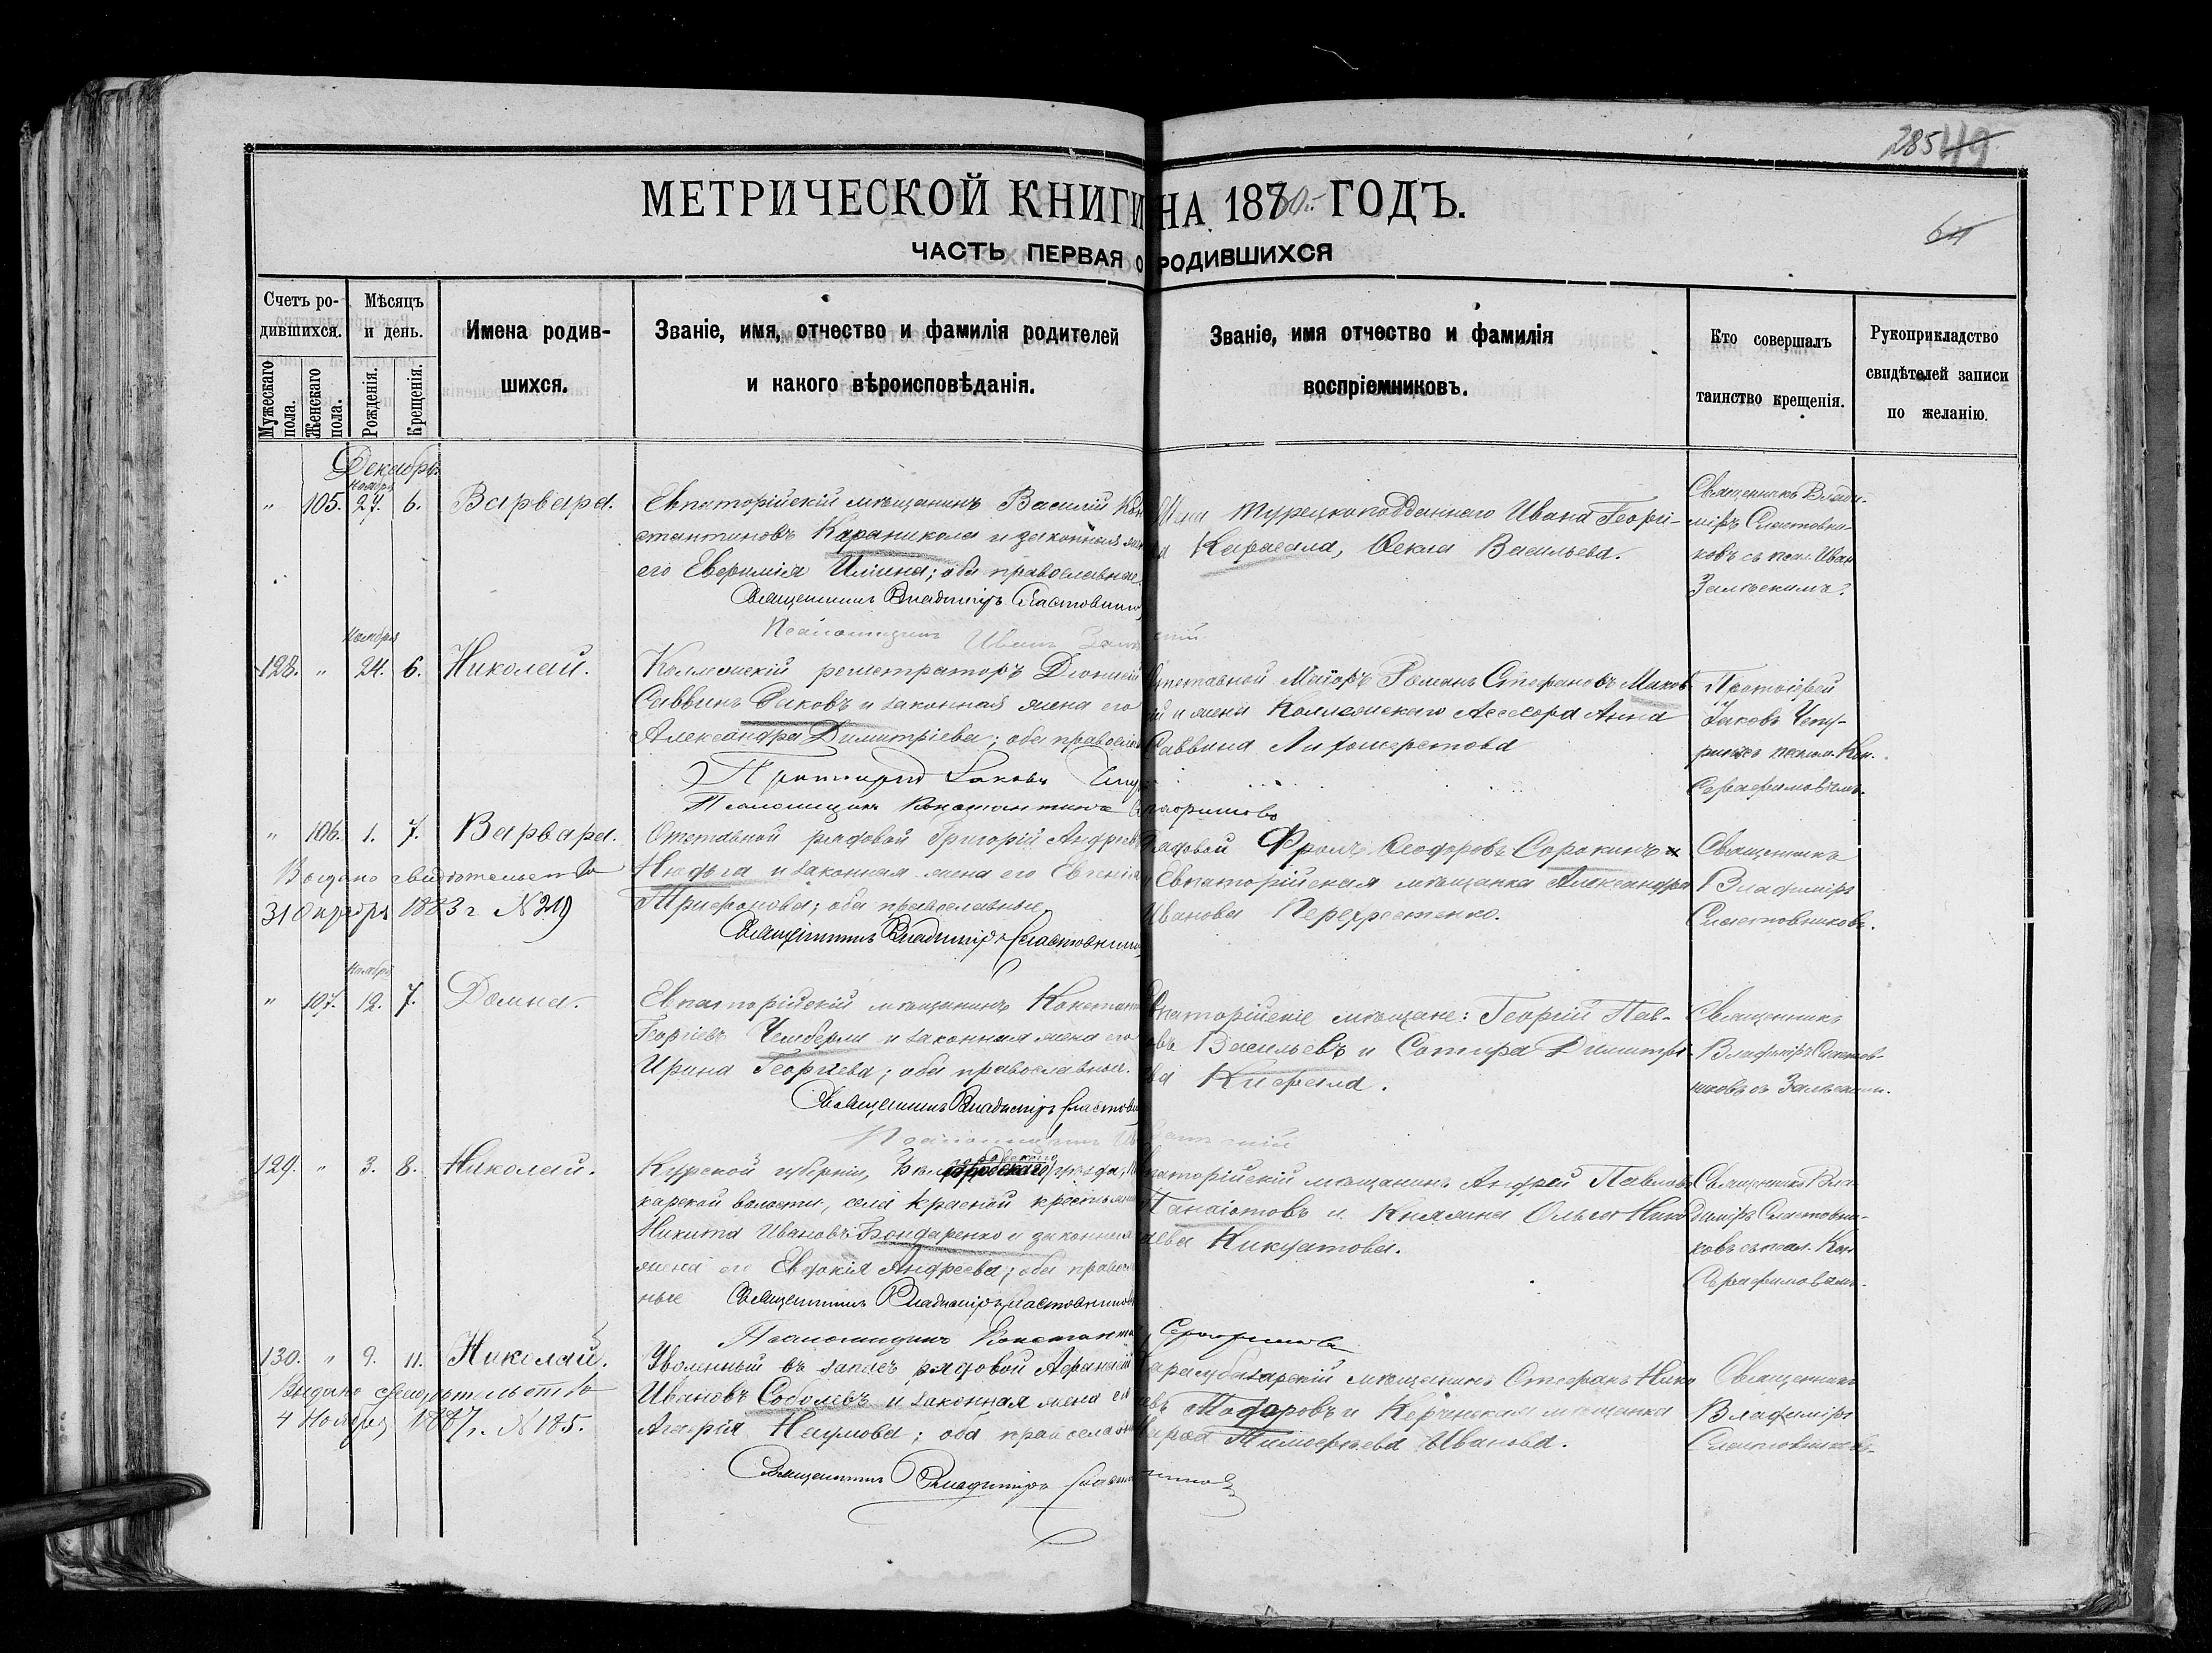 285 49
МЕТРИЧЕСКОЙ КНИГИ НА 1880 ГОДЪ.
64
ЧАСТЬ ПЕРВАЯ О РОДИВШИХСЯ
Счетъ родившихся.
Мужескаго пола.
Женскаго пола.
Мѣсяцъ и день.
Рожденія.
Крещенія.
Имена родившихся.
Званіе, имя, отчество и фамилія родителей
и какого вѣроисповѣданія.
Званіе, имя отчество и фамилія
воспріемниковъ.
Кто совершалъ
таинство крещенія.
Рукоприкладство
свидѣтелей записи
по желанію.
Декабрь
Ноября
" 105. 27. 6. Варвара.
Евпаторійскій мѣщанинъ Василій Кон
стантиновъ Караникола и законная
его Евфимія Ильина; оба православные.
Священникъ Владиміръ Сластовник
Псаломщикъ Иванъ
Жена Турецкоподданнаго Ивана Георгі-
Карагала, Ѳекла Васильева.
Священникъ Влади-
міръ Сластовни-
ковъ съ псал. Иван
Зальскимъ.
Ноября
128. " 24. 6. Николай.
Коллежскій регистраторъ Діонисій
Саввинъ Быковъ и законная жена его
Александра Димитріева; оба правосла
Протоіерей Іаковъ
Псаломщикъ Константинъ Серафимовъ
Отставной Маіоръ Романъ Стефановъ Маков
и жена Коллежскаго Ассесора Анна
Саввина Лихошерстова
Протоіерей
Іаковъ Чепу-
ринъ съ псалом. Кон.
Серафимовымъ.
" 106. 1. 7. Варвара.
Выдано свидѣтельство
31 Октября 1883 г. № 219
Отставной рядовой Григорій Андреев
Нюдьга и законная жена его Евгенія
Трифонова; оба православные.
Священникъ Владиміръ Сластовник
Рядовой Фролъ Ѳеодоровъ Сорокинъ
и Евпаторійская мѣщанка Александра
Иванова Перехрестенко.
Священникъ
Владиміръ
Сластовниковъ.
Ноября
" 107. 12. 7. Домна.
Евпаторійскій мѣщанинъ Констант
Георгіевъ Чемберли и законная жена его
Ирина Георгіева; оба православные.
Священникъ Владиміръ Сластовн
Псаломщикъ
Евпаторійскіе мѣщане: Георгій Пав-
овъ Васильевъ и Сотира Димитрі
ва Кифала.
Священникъ
Владиміръ Сластов-
никовъ съ Зальским.
129. " 3. 8. Николай.
Курской губерніи, Бѣлгородскаго уѣзда,
карской волости, села Красной крестьян
Никита Ивановъ Бондаренко и законная
жена его Евдокія Андреева; оба правосл
ные Священникъ Владиміръ Сластовников
Псаломщикъ Константинъ Серафимовъ
Евпаторійскій мѣщанинъ Андрей Павловъ
Панаіотовъ и Княжна Ольга Нико
аева Кикуатова.
Священникъ Вла-
диміръ Сластовни-
ковъ съ псал. Кон
Серафимовымъ.
130. " 9. 11. Николай.
Выдано свидѣтельство
4 Ноября 1887 г. № 185.
Уволенный въ запасъ рядовой Афанасій
Ивановъ Соболевъ и законная жена его
Агафія Наумова; оба православн
Священникъ Владиміръ Сластовниковъ
Карасубазарскій мѣщанинъ Стефанъ Нико
Тодоровъ и Керченская мѣщанка
Марѳа Тимоѳеева Иванова.
Священникъ
Владиміръ
Сластовниковъ.